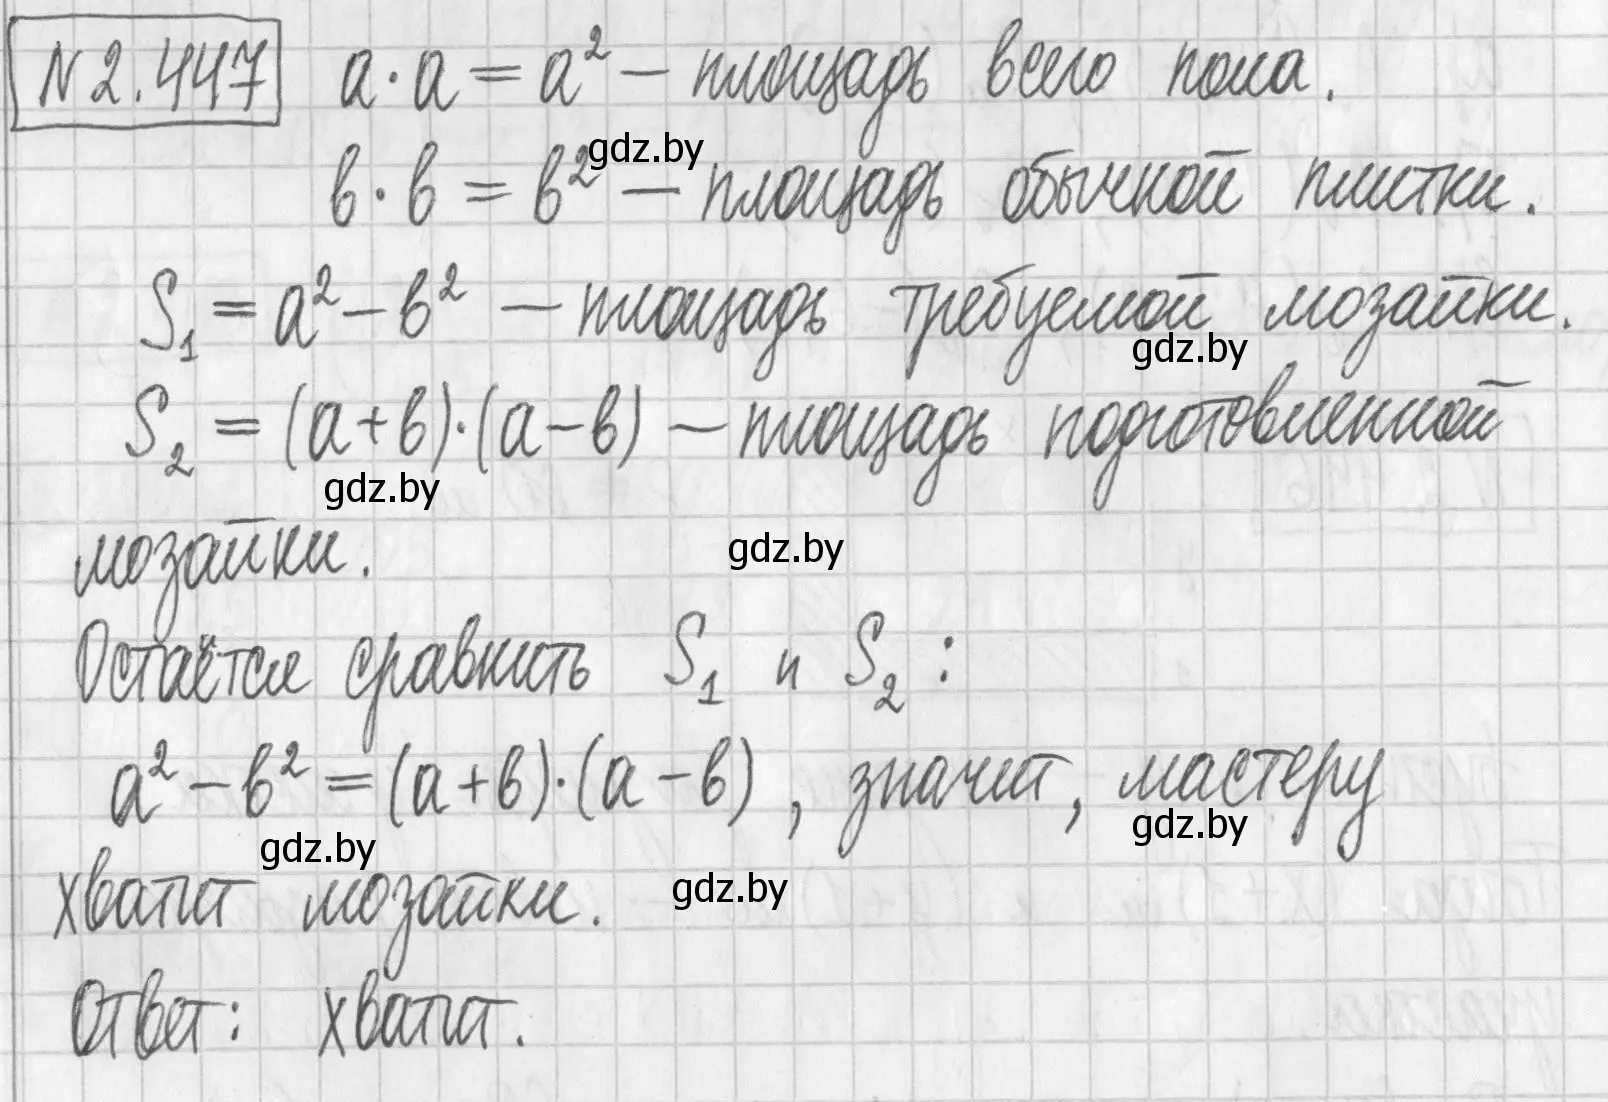 N 2.447 a · a = a² – площадь всего пола.
gdz.by
в · в = в² – площадь обычной плитки.
S₁ = a² – в² – площадь требуемой мозайки.
gdz.by
S₂ = (a + в) · (a – в) – площадь подготовленной
gdz.by
мозайки.
gdz.by
Остаётся сравнить S₁ и S₂ :
a² – в² = (a + в) · (a – в), значит, мастеру
gdz.by
gdz.by
хватит мозайки.
gdz.by
Ответ: хватит.